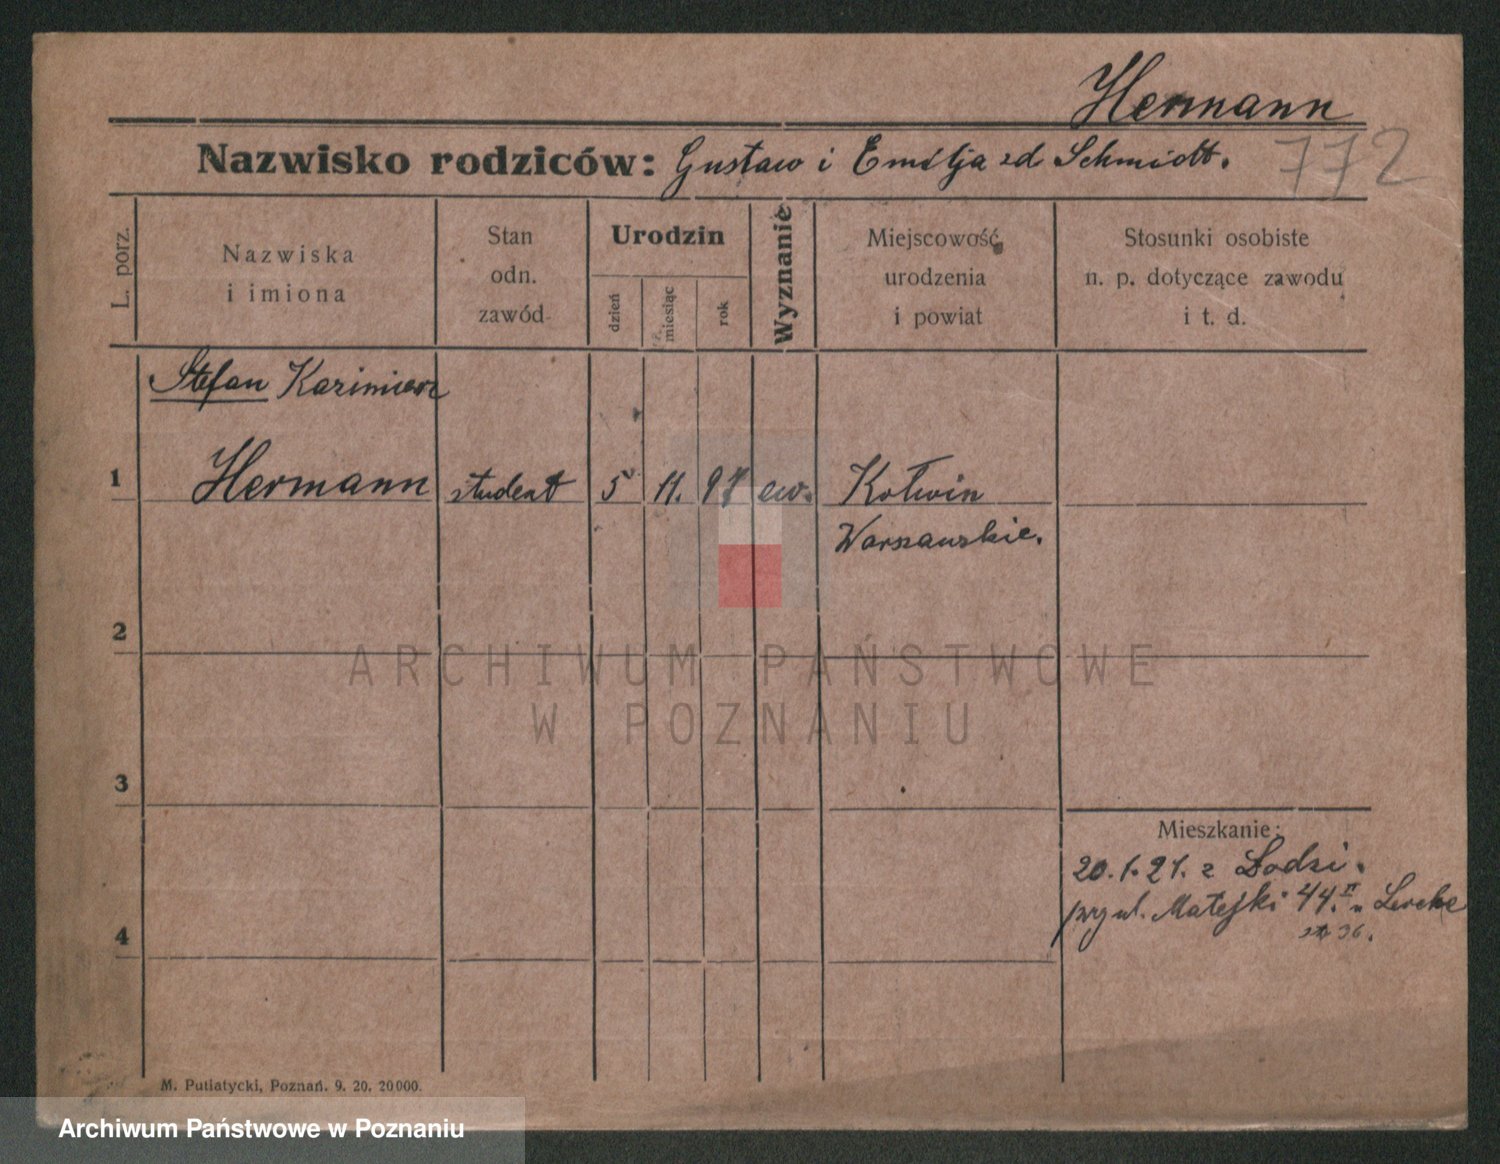 Hermann
Nazwisko rodziców: Gustaw i Emilja zd Schmidt.
772
L. porz.
Nazwiska
i imiona
Stan
odn.
zawód
Urodzin
dzień
miesiąc
rok
Wyznanie
Miejscowość
urodzenia
i powiat
Stosunki osobiste
n. p. dotyczące zawodu
i t. d.
Stefan Kazimierz
1 Hermann student 5 11. 97 ew. Kotwin
Warszawskie.
2
ARCHIWUM PAŃSTWOWE
W POZNANIU
3
Mieszkanie:
20.1.21. z Łodzi.
przy ul. Matejki 44. II u Lerche
4
36.
M. Putiatycki, Poznań. 9. 20. 20000.
Archiwum Państwowe w Poznaniu